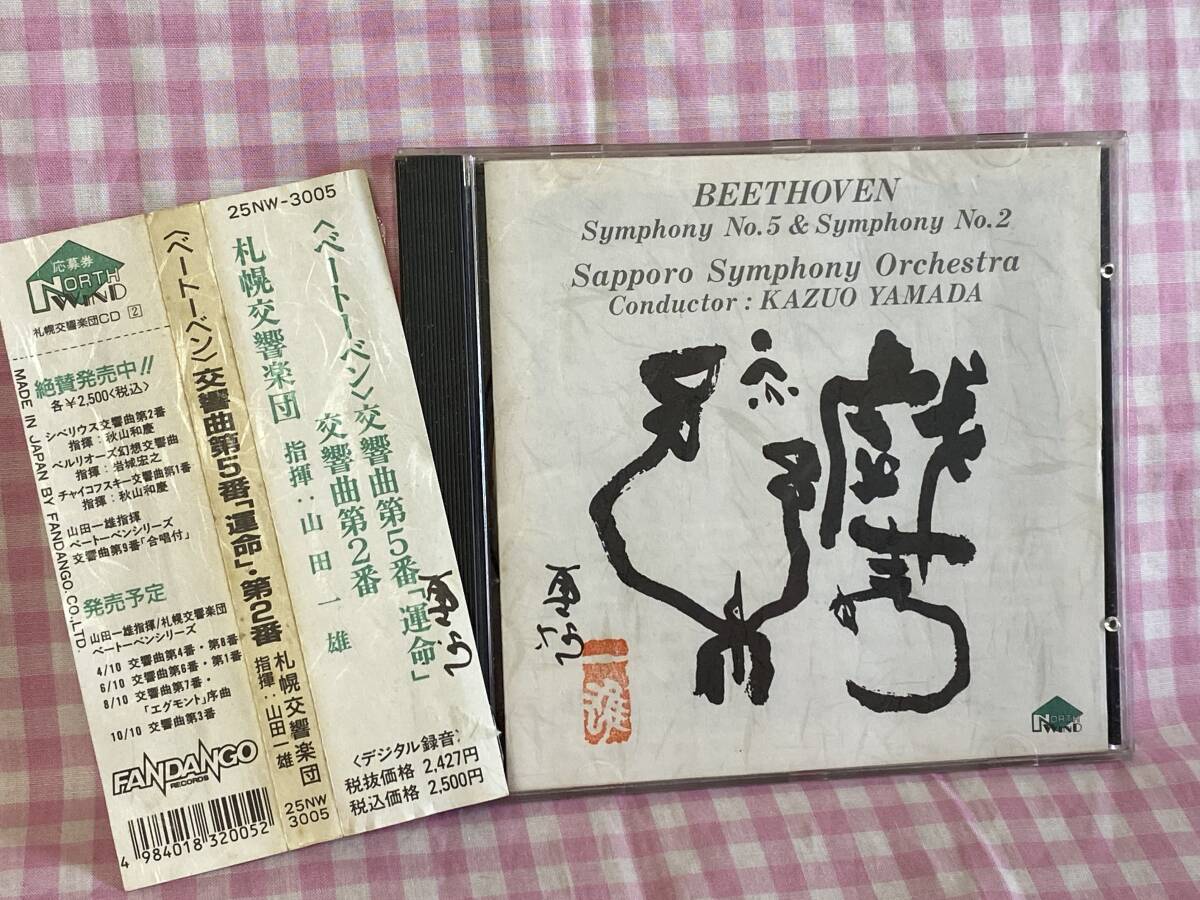 応募券
NORTH
WIND
札幌交響楽団CD 2
絶賛発売中!!
各¥2,500〈税込〉
シベリウス交響曲第2番
指揮:秋山和慶
ベルリオーズ幻想交響曲
指揮:岩城宏之
チャイコフスキー交響曲第1番
指揮:秋山和慶
山田一雄指揮
ベートーベンシリーズ
交響曲第9番「合唱付」
発売予定
山田一雄指揮/札幌交響楽団
ベートーベンシリーズ
4/10 交響曲第4番・第8番
6/10 交響曲第6番・第1番
8/10 交響曲第7番・
「エグモント」序曲
10/10 交響曲第3番
FANDANGO
RECORDS
4 984018 320052
MADE IN JAPAN BY FANDANGO.CO.,LTD.
〈ベートーベン〉交響曲第5番「運命」・第2番
札幌交響楽団
指揮:山田一雄
25NW
3005
25NW-3005
〈ベートーベン〉交響曲第5番「運命」
交響曲第2番
札幌交響楽団 指揮:山田一雄
〈デジタル録音〉
税抜価格 2,427円
税込価格 2,500円
BEETHOVEN
Symphony No.5 & Symphony No.2
Sapporo Symphony Orchestra
Conductor : KAZUO YAMADA
NORTH
WIND